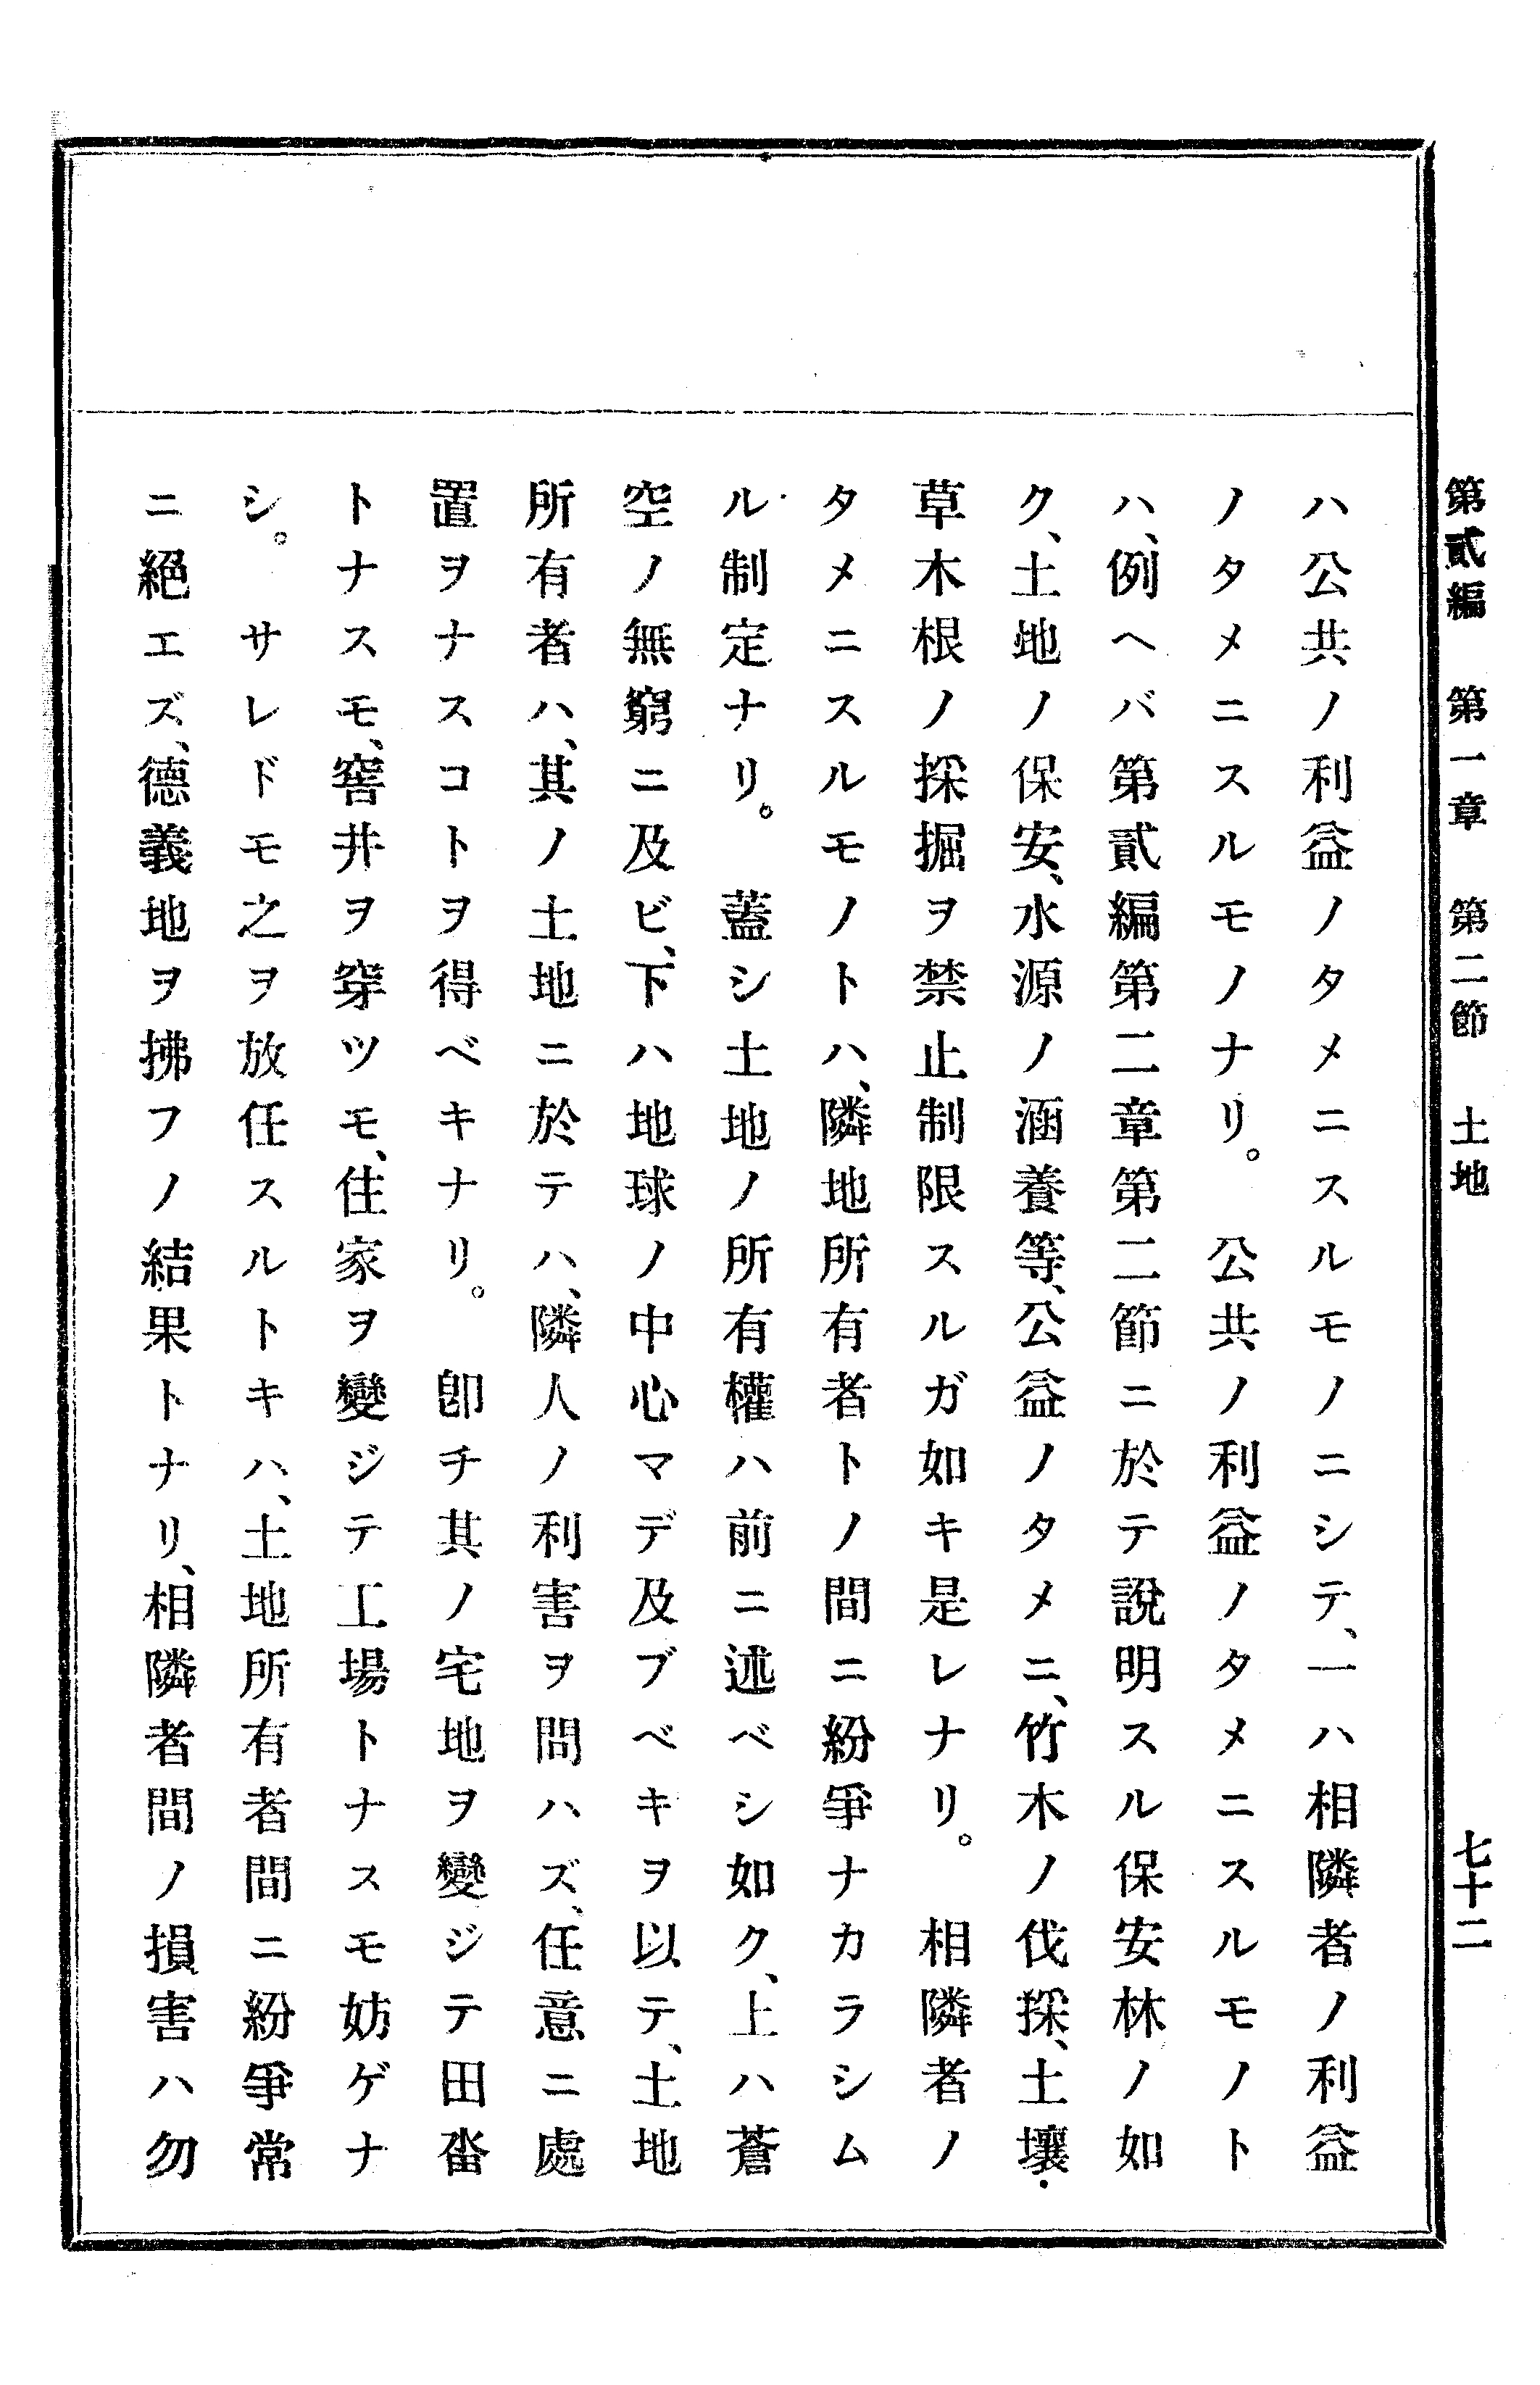 第貳編　第一章　第二節　土地
七十二
ハ公共ノ利益ノタメニスルモノニシテ、一ハ相隣者ノ利益
ノタメニスルモノナリ。　公共ノ利益ノタメニスルモノト
ハ、例ヘバ第貳編第二章第二節ニ於テ說明スル保安林ノ如
ク、土地ノ保安、水源ノ涵養等、公益ノタメニ、竹木ノ伐採、土壤・
草木根ノ採掘ヲ禁止制限スルガ如キ是レナリ。　相隣者ノ
タメニスルモノトハ、隣地所有者トノ間ニ紛爭ナカラシム
ル制定ナリ。　蓋シ土地ノ所有權ハ前ニ述ベシ如ク、上ハ蒼
空ノ無窮ニ及ビ、下ハ地球ノ中心マデ及ブベキヲ以テ、土地
所有者ハ、其ノ土地ニ於テハ、隣人ノ利害ヲ問ハズ、任意ニ處
置ヲナスコトヲ得ベキナリ。　卽チ其ノ宅地ヲ變ジテ田畓
トナスモ、窖井ヲ穿ツモ、住家ヲ變ジテ工場トナスモ妨ゲナ
シ。　サレドモ之ヲ放任スルトキハ、土地所有者間ニ紛爭常
ニ絕エズ、德義地ヲ拂フノ結果トナリ、相隣者間ノ損害ハ勿